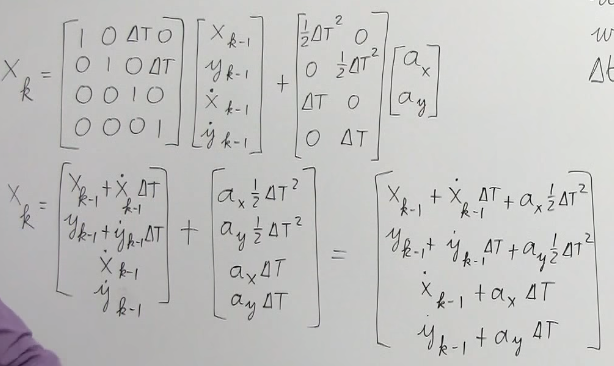 X_k = [1 0 ΔT 0; 0 1 0 ΔT; 0 0 1 0; 0 0 0 1] [x_{k-1}; y_{k-1}; ẋ_{k-1}; ẏ_{k-1}] + [½ΔT² 0; 0 ½ΔT²; ΔT 0; 0 ΔT] [a_x; a_y]
X_k = [x_{k-1} + ẋ_{k-1} ΔT; y_{k-1} + ẏ_{k-1} ΔT; ẋ_{k-1}; ẏ_{k-1}] + [a_x ½ ΔT²; a_y ½ ΔT²; a_x ΔT; a_y ΔT] = [x_{k-1} + ẋ_{k-1} ΔT + a_x ½ ΔT²; y_{k-1} + ẏ_{k-1} ΔT + a_y ½ ΔT²; ẋ_{k-1} + a_x ΔT; ẏ_{k-1} + a_y ΔT]